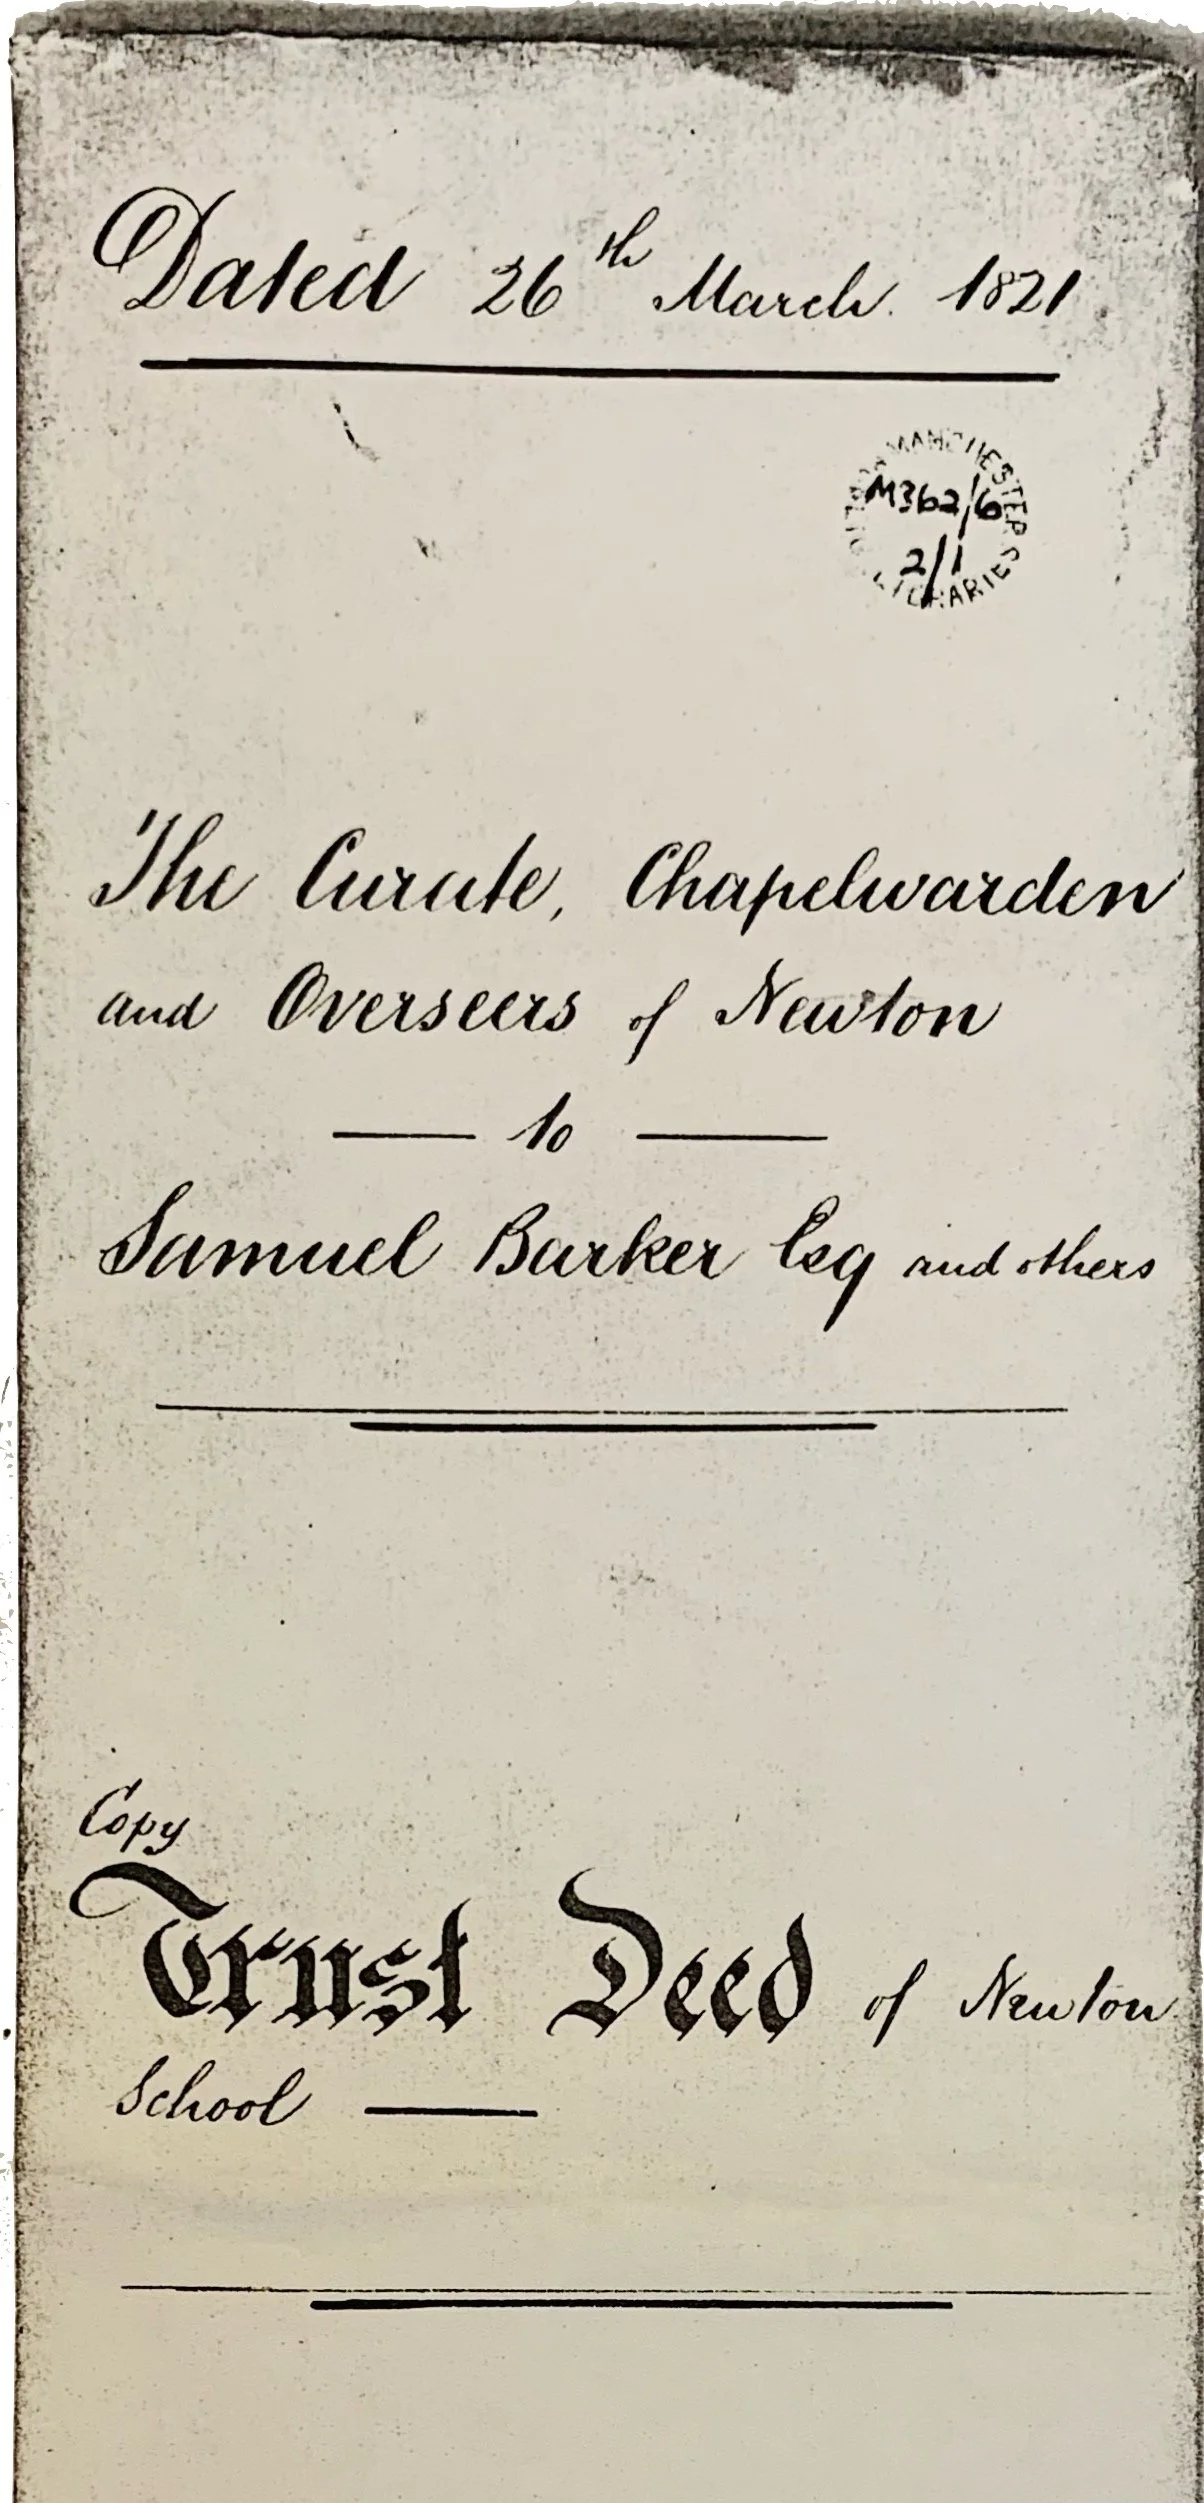 Dated 26th March. 1821
MANCHESTER
M362/6
2/1
LIBRARIES
The Curate, Chapelwarden
and Overseers of Newton
— to —
Samuel Barker Esq and others
Copy
Trust Deed of Newton
School —